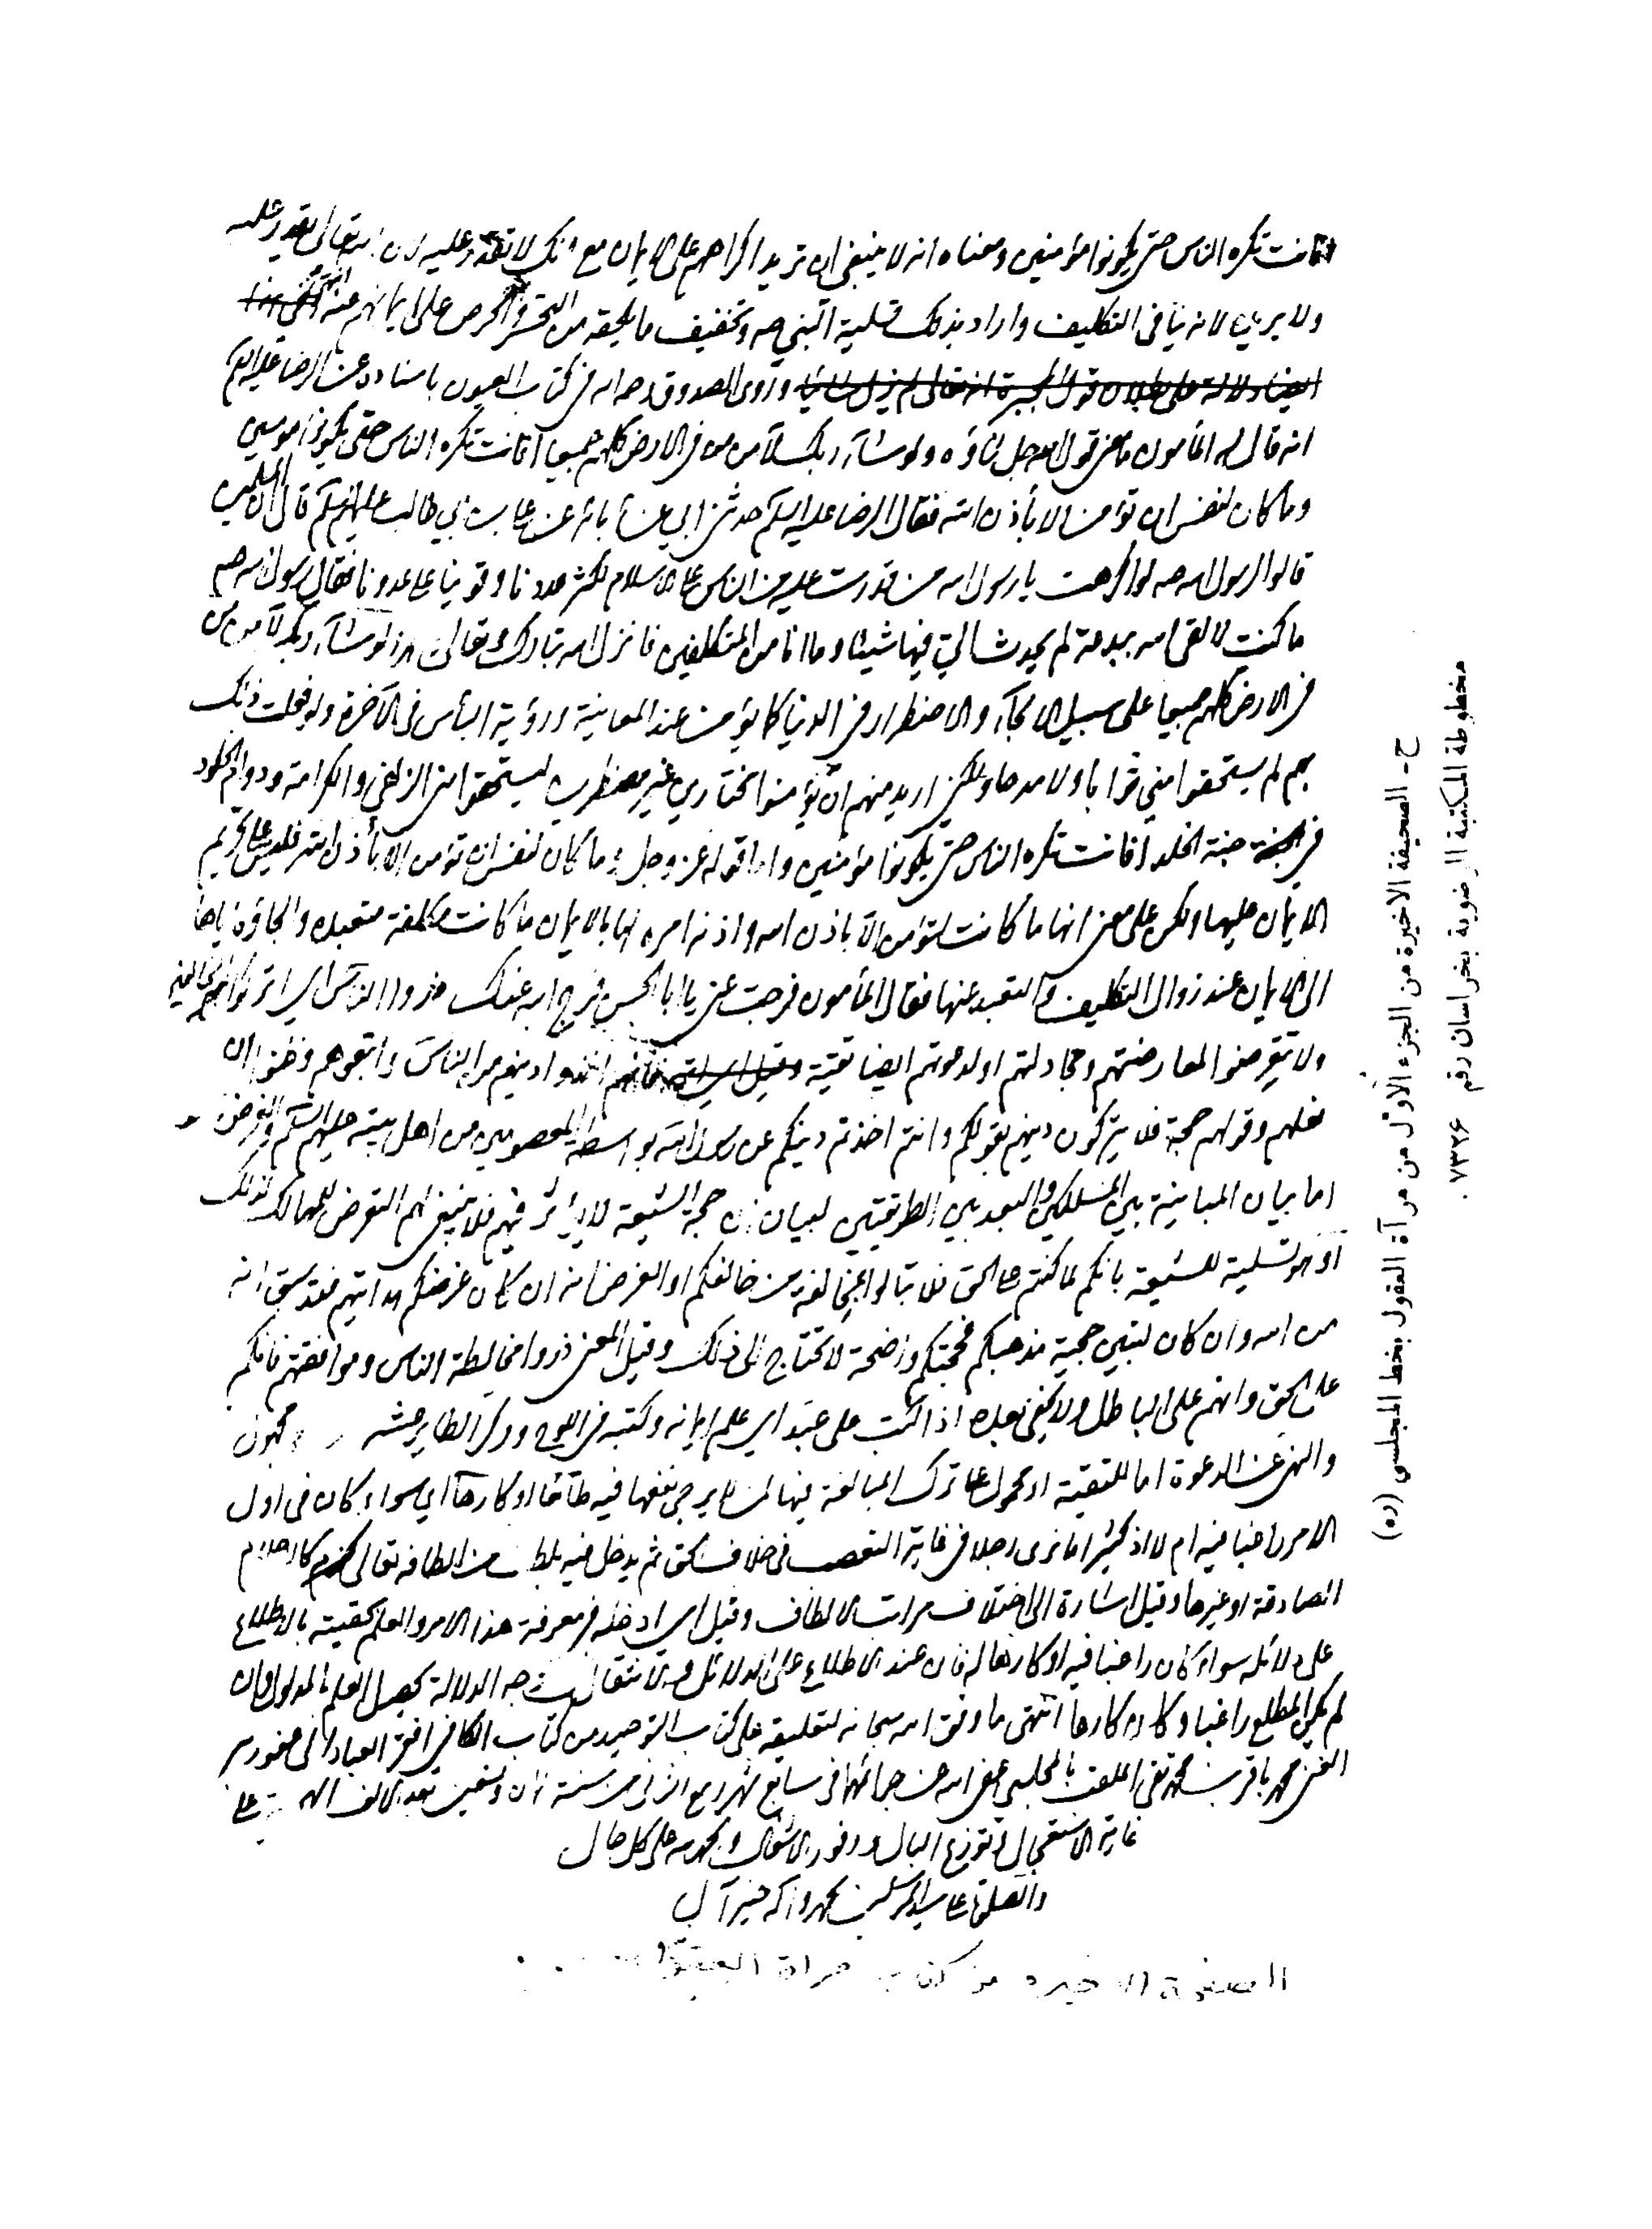 أفانت تكره الناس حتى يكونوا مؤمنين ومعناه انه لا ينبغي ان تريد اكراههم على الايمان مع انك لا تقدر عليه لان الله تعالى يقدر عليه
ولا يريده لانه ينافي التكليف واراد بذلك تسلية النبي صه وتخفيف ما يلحقه من التحسر والحرص على ايمانهم عنه انتهى
ايضا دلالة على بطلان قول المجبرة انه تعالى لم يزل وروى الصدوق رحمه الله في كتاب العيون باسناده عن الرضا عليه السلم
انه قال له المأمون ما معنى قول الله جل ثناؤه ولو شاء ربك لآمن من في الارض كلهم جميعا أفانت تكره الناس حتى يكونوا مؤمنين
وما كان لنفس ان تؤمن الا بأذن الله فقال الرضا عليه السلم حدثني ابي عن آبائه عن علي بن ابي طالب عليهم السلم قال ان المسلمين
قالوا لرسول الله صه لو اكرهت يا رسول الله من قدرت عليه من الناس على الاسلام لكثر عددنا وقوينا على عدونا فقال رسول الله صه
ما كنت لالقى الله ببدعة لم يحدث الي فيها شيئا وما انا من المتكلفين فانزل الله تبارك وتعالى يا محمد ولو شاء ربك لآمن من
في الارض كلهم جميعا على سبيل الالجاء والاضطرار في الدنيا كما يؤمن عند المعاينة ورؤية البأس في الآخرة ولو فعلت ذلك
بهم لم يستحقوا مني ثوابا ولا مدحا ولكني اريد منهم ان يؤمنوا مختارين غير مضطرين ليستحقوا مني الزلفى والكرامة ودوام الخلود
في الجنة جنة الخلد أفانت تكره الناس حتى يكونوا مؤمنين واما قوله عز وجل وما كان لنفس ان تؤمن الا بأذن الله فليس على تحريم
الايمان عليها ولكن على معنى انها ما كانت لتؤمن الا باذن الله واذنه امره لها بالايمان ما كانت مكلفة متعبدة والجاؤه اياها
الى الايمان عند زوال التكليف والتعبد عنها فقال المأمون فرجت عني يا ابا الحسن فرج الله عنك ذروا الناس اي اتركوا المخالفين
ولا تتعرضوا لمعارضتهم ومجادلتهم او لدعوتهم ايضا تقية فانهم اخذوا دينهم من الناس واتبعوهم وظنوا ان
فعلهم وقولهم حجة فلا يتركون دينهم بقولكم وانتم اخذتم دينكم عن رسول الله بواسطة المعصومين من اهل بيته عليهم السلم والغرض
اما بيان المباينة بين المسلكين والبعد بين الطريقتين لبيان ان حجة الشيعة لا يؤثر فيهم فلا ينبغي لهم التعرض للمهالك لذلك
او هو تسلية للشيعة بانكم لما كنتم على الحق فلا تبالوا بمخالفة من خالفكم او الغرض انه ان كان غرضكم هدايتهم فقد سبق انه
من الله وان كان لتبيين حجية مذهبكم فحجتكم واضحة لا تحتاج الى ذلك وقيل المعنى ذروا مخالطة الناس وموافقتهم فانكم
على الحق وانهم على الباطل ولا يخفى بعده اذا كتب على عبد اي علم ايمانه وكتبه في اللوح ووكر الطاير عشه مجهول
والنهي عن الدعوة اما للتقية او محمول على ترك المبالغة فيها لمن لا يرجى نفعها فيه طائعا او كارها اي سواء كان في اول
الامر راغبا فيه ام لا اذ كثيرا ما نرى رجلا في غاية التعصب في خلاف الحق ثم يدخل فيه بلطف من الطافه تعالى كالاحلام
الصادقة او غيرها وقيل اشارة الى اختلاف مراتب الالطاف وقيل اي ادخله في معرفة هذا الامر والعلم بحقيته بالاطلاع
على دلائله سواء كان راغبا فيه او كارها له فان عند الاطلاع على الدلائل والانتقال الى وجه الدلالة يحصل العلم بالمدلول وان
لم يكن المطلع راغبا وكان كارها انتهى ما وفق الله سبحانه لتعليقه على كتاب التوحيد من كتاب الكافي افقر العباد الى عفو ربه
الغني محمد باقر بن محمد تقي الملقب بالمجلسي عفى الله عن جرائمهما في سابع شهر ربيع الثاني من سنة ثمان وتسعين بعد الالف الهجرية على
غاية الاستعجال وتوزع البال ووفور الاشغال والحمد لله على كل حال
والصلوة على سيد المرسلين محمد وآله خير آل
الصفحة الاخيرة من كتاب مرآة العقول
ح ـ الصحيفة الاخيرة من الجزء الأول من مرآة العقول بخط المجلسي (ره)
مخطوطة المكتبة الرضوية بخراسان رقم ٧٣٢۶ .